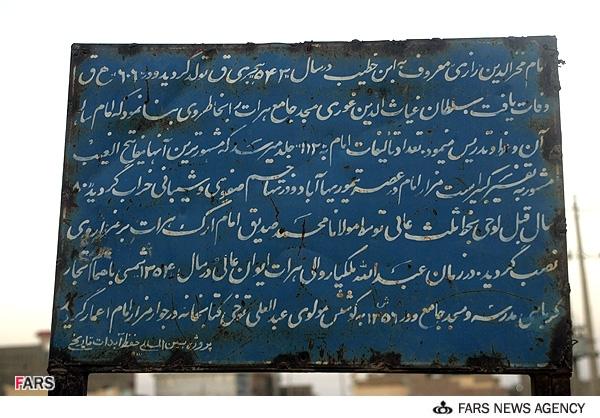 امام فخرالدین رازی معروف به ابن خطیب در سال ۵۴۳ هجری ق تولد گردید و در ۶۰۶ ه ق
وفات یافت سلطان غیاث الدین غوری مسجد جامع هرات را بخاطر وی بنا نمود که امام سا
آن وعظ و تدریس مینمود تعداد تالیفات امام به ۱۱۲ جلد میرسد که مشهورترین آنها مفاتیح الغیب
مشهور به تفسیر کبیر است مزار امام در عصر تیموریها آباد و در تهاجم صفوی و شیبانی خراب گردید ۸۰
سال قبل لوحی بخط ثلث عالی توسط مولانا محمد صدیق امام ارگ هرات بر مزار وی
نصب گردید در زمان عبدالله ملکیار والی هرات ایوان عالی در سال ۱۳۵۴ شمسی با همکاری تجار
گرامی مدرسه و مسجد جامع و در ۱۳۵۶ ش به کوشش مولوی عبدالعلی توجی کتابخانه در جوار مزار امام اعمار گردید
پروژه بین المللی حفظ آبدات تاریخی
FARS
FARS NEWS AGENCY